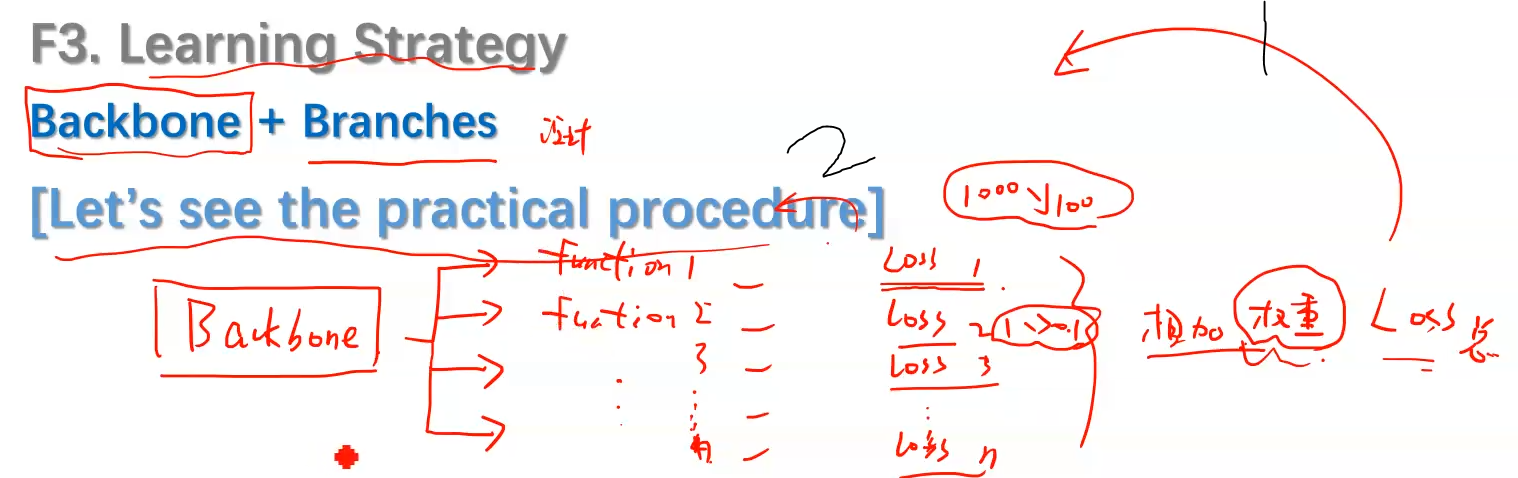 F3. Learning Strategy
Backbone + Branches
2
[Let's see the practical procedure]
1000↘100
Backbone
function 1 — Loss 1
fuation 2 — Loss 2 1↘0.1
3 — Loss 3
n — Loss n
相加 权重 Loss 总
1